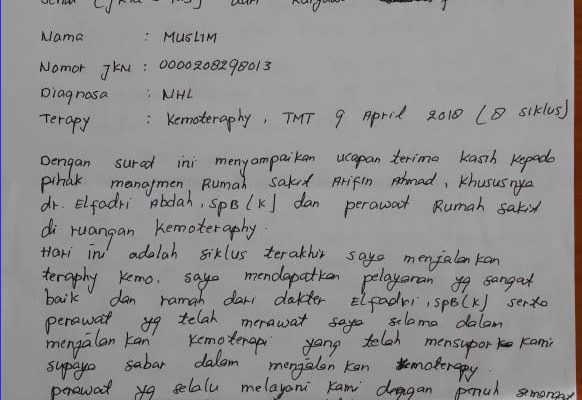 (JKN - KIS) dari
Nama : MUSLIM
Nomor JKN : 0000208298013
Diagnosa : NHL
Terapy : Kemoteraphy, TMT 9 April 2018 (8 siklus)
Dengan surat ini menyampaikan ucapan terima kasih kepada
pihak manajmen Rumah sakit Arifin Ahmad, khususnya
dr. Elfadri Abdah, SpB(K) dan perawat Rumah sakit
di ruangan kemoteraphy.
Hari ini adalah siklus terakhir saya menjalankan
teraphy kemo. saya mendapatkan pelayanan yg sangat
baik dan ramah dari dokter Elfadri, SpB(K) serta
perawat yg telah merawat saya selama dalam
menjalankan kemoterapi yang telah mensupor kami
supaya sabar dalam menjalankan kemoterapy.
perawat yg selalu melayani kami dengan penuh semangat